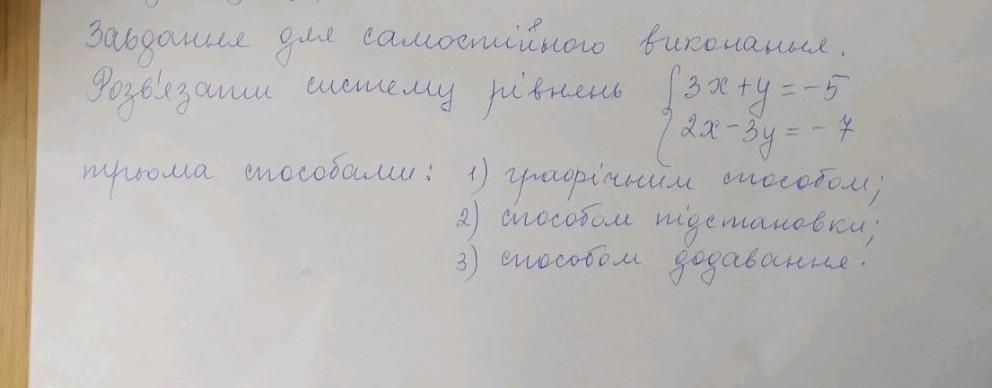 Завдання для самостійного виконання.
Розв'язати систему рівнень { 3x+y=-5
2x-3y=-7
трьома способами: 1) графічним способом;
2) способом підстановки;
3) способом додавання.